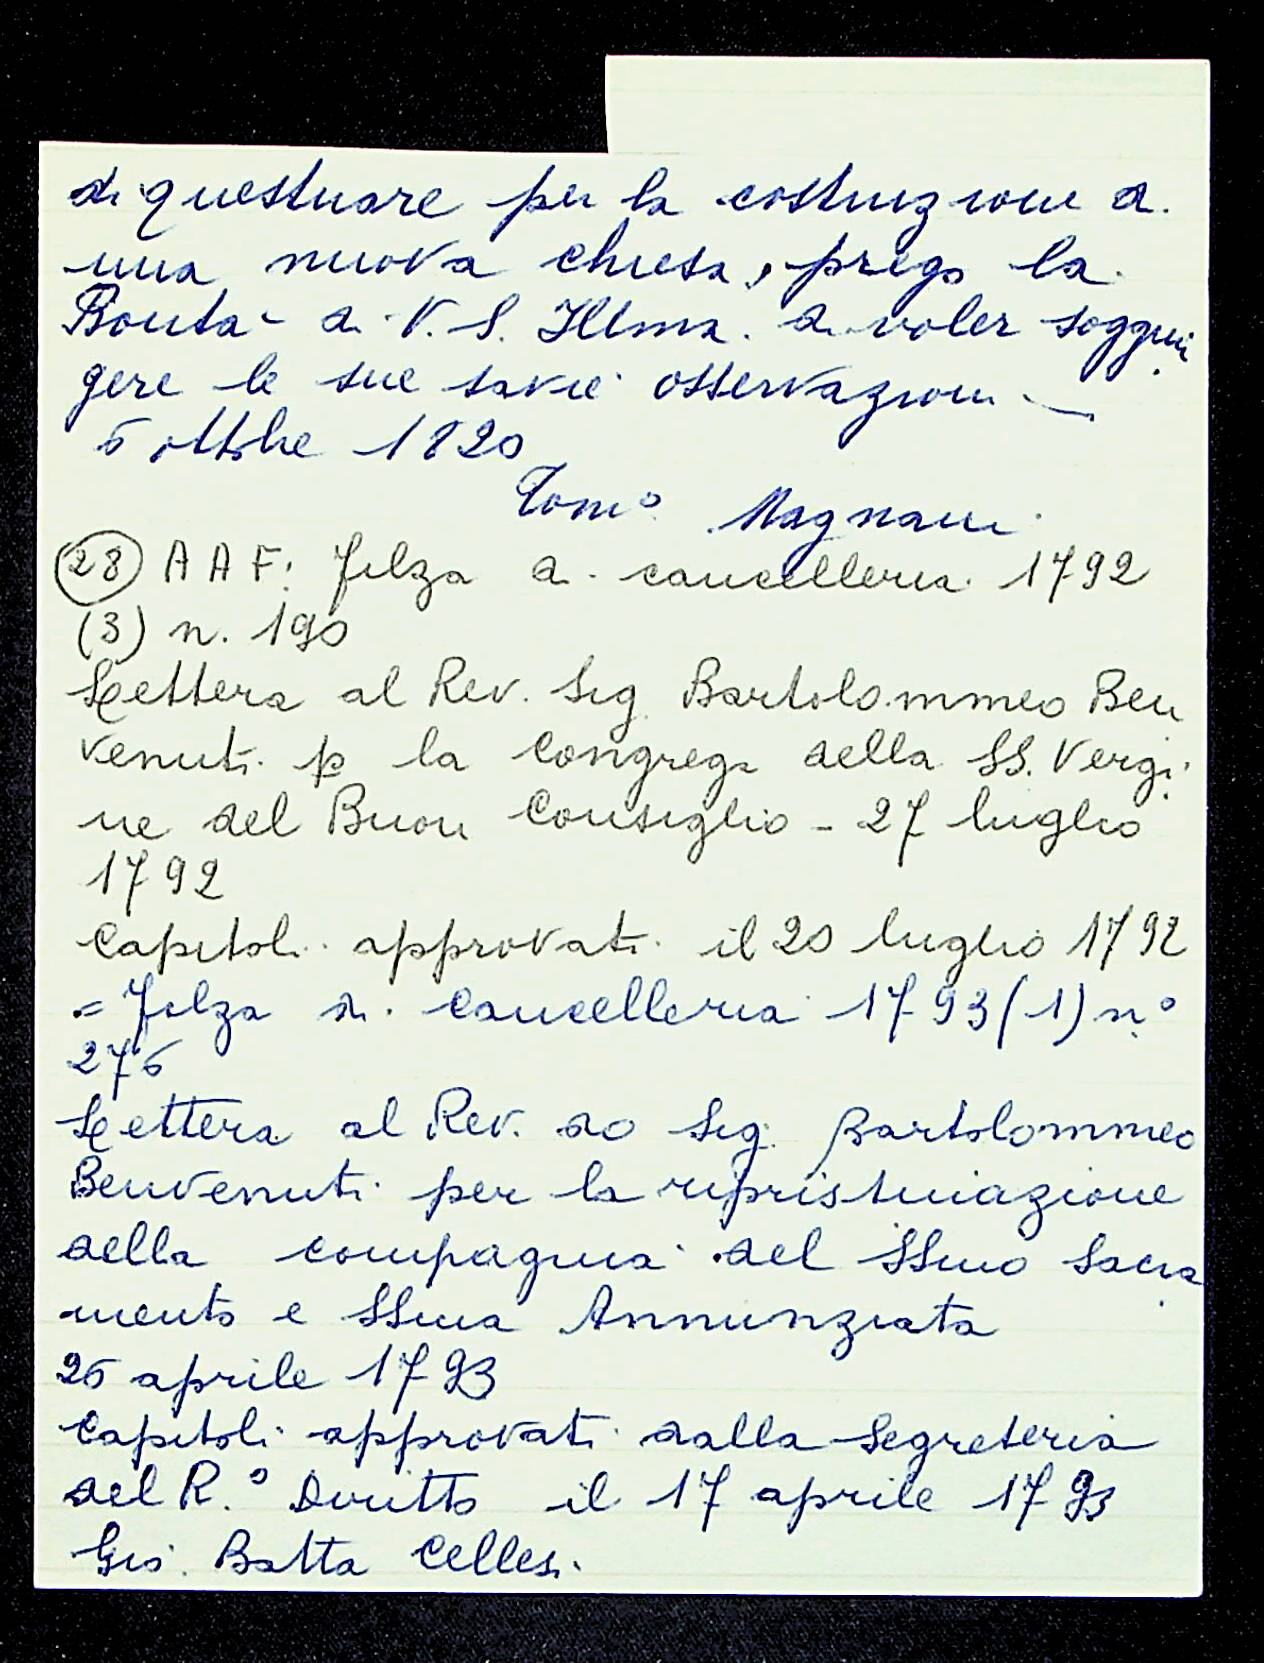 di questuare per la costruzione di
una nuova chiesa, prego la
Bontà di V. S. Illma. di voler soggiun
gere le sue savie osservazioni —
6 ottbre 1820
Tomo Magnani
(28) A A F: Filza di cancelleria 1792
(3) n. 190
Lettera al Rev. Sig. Bartolommeo Ben
venuti p la Congrega della SS. Vergi
ne del Buon Consiglio - 27 luglio
1792
Capitoli approvati il 20 luglio 1792
= Filza di Cancelleria 1793 (1) n.o
276
Lettera al Rev. do Sig. Bartolommeo
Benvenuti per la ripristinazione
della compagnia del SSmo Sacra
mento e SSma Annunziata
26 aprile 1793
Capitoli approvati dalla Segreteria
del R.o Diritto il 17 aprile 1793
Gio. Batta Cellesi